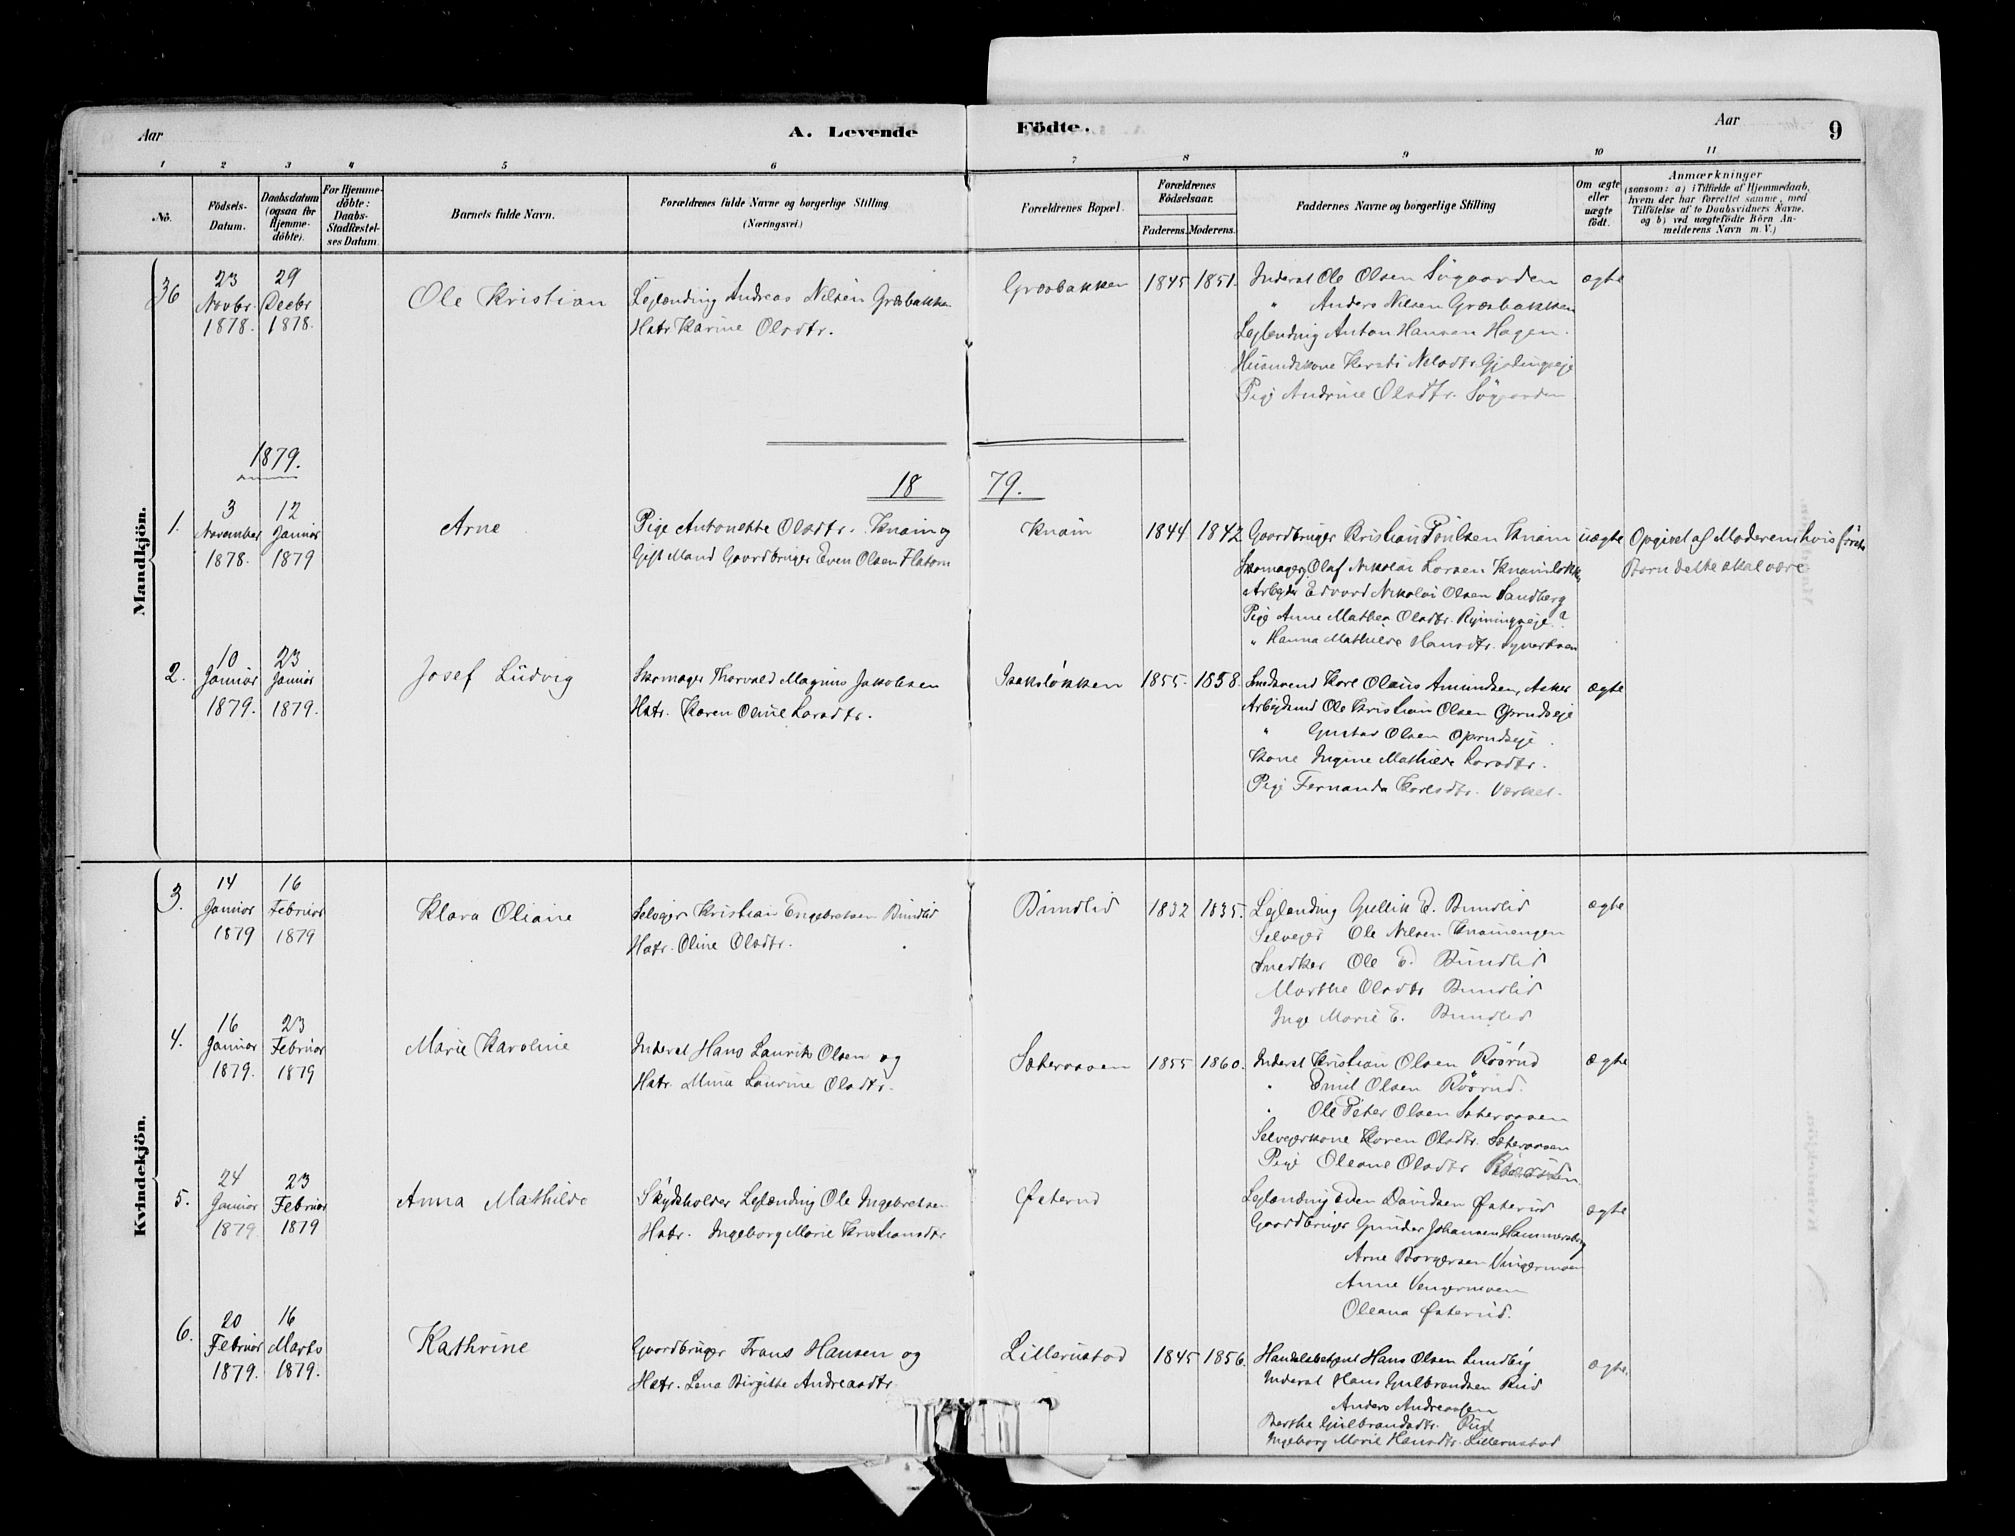 Aar
A. Levende
Födte.
Aar
9
1 2 3 4 5 6 7 8 9 10 11
Nö.
Födsels-
Datum.
Daabsdatum
(ogsaa for
Hjemme-
döbte).
For Hjemme-
döbte:
Daabs-
Stadfæstel-
ses Datum.
Barnets fulde Navn.
Forældrenes fulde Navne og borgerlige Stilling
(Næringsvei.)
Forældrenes Bopæl.
Forældrenes
Födselsaar.
Faderens.
Moderens.
Faddernes Navne og borgerlige Stilling
Om ægte
eller
uægte
födt.
Anmærkninger
(saasom: a) i Tilfælde af Hjemmedaab,
hvem der har forrettet samme, med
Tilföielse af to Daabsvidners Navne,
og b) ved uægtefödte Börn An-
melderens Navn m. V.)
Mandkjön.
36
23
Novbr.
1878.
29
Decbr
1878.
Ole Kristian
Leilænding Andreas Nilsen Græsbakken
Hstr Karine Olsdtr.
Græsbakken
1845
1851.
Inderst Ole Olsen Søgaarden
" Anders Nilsen Græsbakken
Leilænding Anton Hansen Hagen.
Husmdskone Kersti Nilsdtr.
Pige Andrine Olsdtr. Søgaarden
ægte
1879.
18 79.
1.
3
November
1878.
12
Januar
1879
Arne
Pige Antonette Olsdtr. Knain og
Gift Mand Gaardbruger Even Olsen Flatom
Knain
1844
1842
Gaardbruger Kristian Poulsen Knain
Skomager Olaf Nikolai Larsen
Arbeider Edvard Nikolai Olsen Sandberg
Pige Anne Mathea Olsdtr.
" Hanna Mathilde Hansdtr.
uægte
Opgivet af Moderen, hvis første
Barn dette skal være
2.
10
Januar
1879.
23
Januar
1879.
Josef Ludvig
Skomager Thorvald Magnus Jakobsen
Hstr. Karen Oline Larsdtr.
Isaksløkken
1855.
1858.
Smedsvend Karl Olaus Amundsen, Asker
Arbeidsmd Ole Kristian Olsen Oprudseje
" Gustav Olsen Oprudseje.
Kone Ingine Mathilde Larsdtr.
Pige Fernanda Karlsdtr. Værket.
ægte
Kvindekjön.
3.
14
Januar
1879
16
Februar
1879
Klara Oliane
Selvejer Kristian Engebretsen Bundlid
Hstr. Oline Olsdtr.
Bundlid
1832
1835.
Leilænding Gullik E. Bundlid
Selvejer Ole Nilsen Knainengen
Snedker Ole E. Bundlid
Marthe Olsdtr Bundlid
Inge Marie E. Bundlid
ægte
4.
16
Januar
1879.
23
Februar
1879
Marie Karoline
Inderst Hans Laurits Olsen og
Hstr. Mina Laurine Olsdtr.
Sæteraasen
1855
1860.
Inderst Kristian Olsen
" Emil Olsen
" Ole Peter Olsen Sæteraasen
Selvejerkone Karen Olsdtr. Sæteraasen
Pige Oleane Olsdtr
ægte
5.
24
Januar
1879
23
Februar
1879
Anna Mathilde
Skydsholder Leilænding Ole Ingebretsen
Hstr. Ingeborg Marie Kristiansdtr
Østerud
Leilænding Even Davidsen Østerud
Gaardbruger Gunder Johansen Hammersborg
Arne Borgersen Vingermoen
Anne Vengermoen
Oleana Østerud.
ægte
6.
20
Februar
1879.
16
Marts
1879.
Kathrine
Gaardbruger Frans Hansen og
Hstr. Lena Birgitte Andreasdtr.
Lillerustad
1845
1856.
Handelsbetjent Hans Olsen Lundby
Inderst Hans Gulbrandsen Rud
Anders Andreassen
Berthe Gulbrandsdtr. Rud
Ingeborg Marie Hansdtr. Lillerustad
ægte.